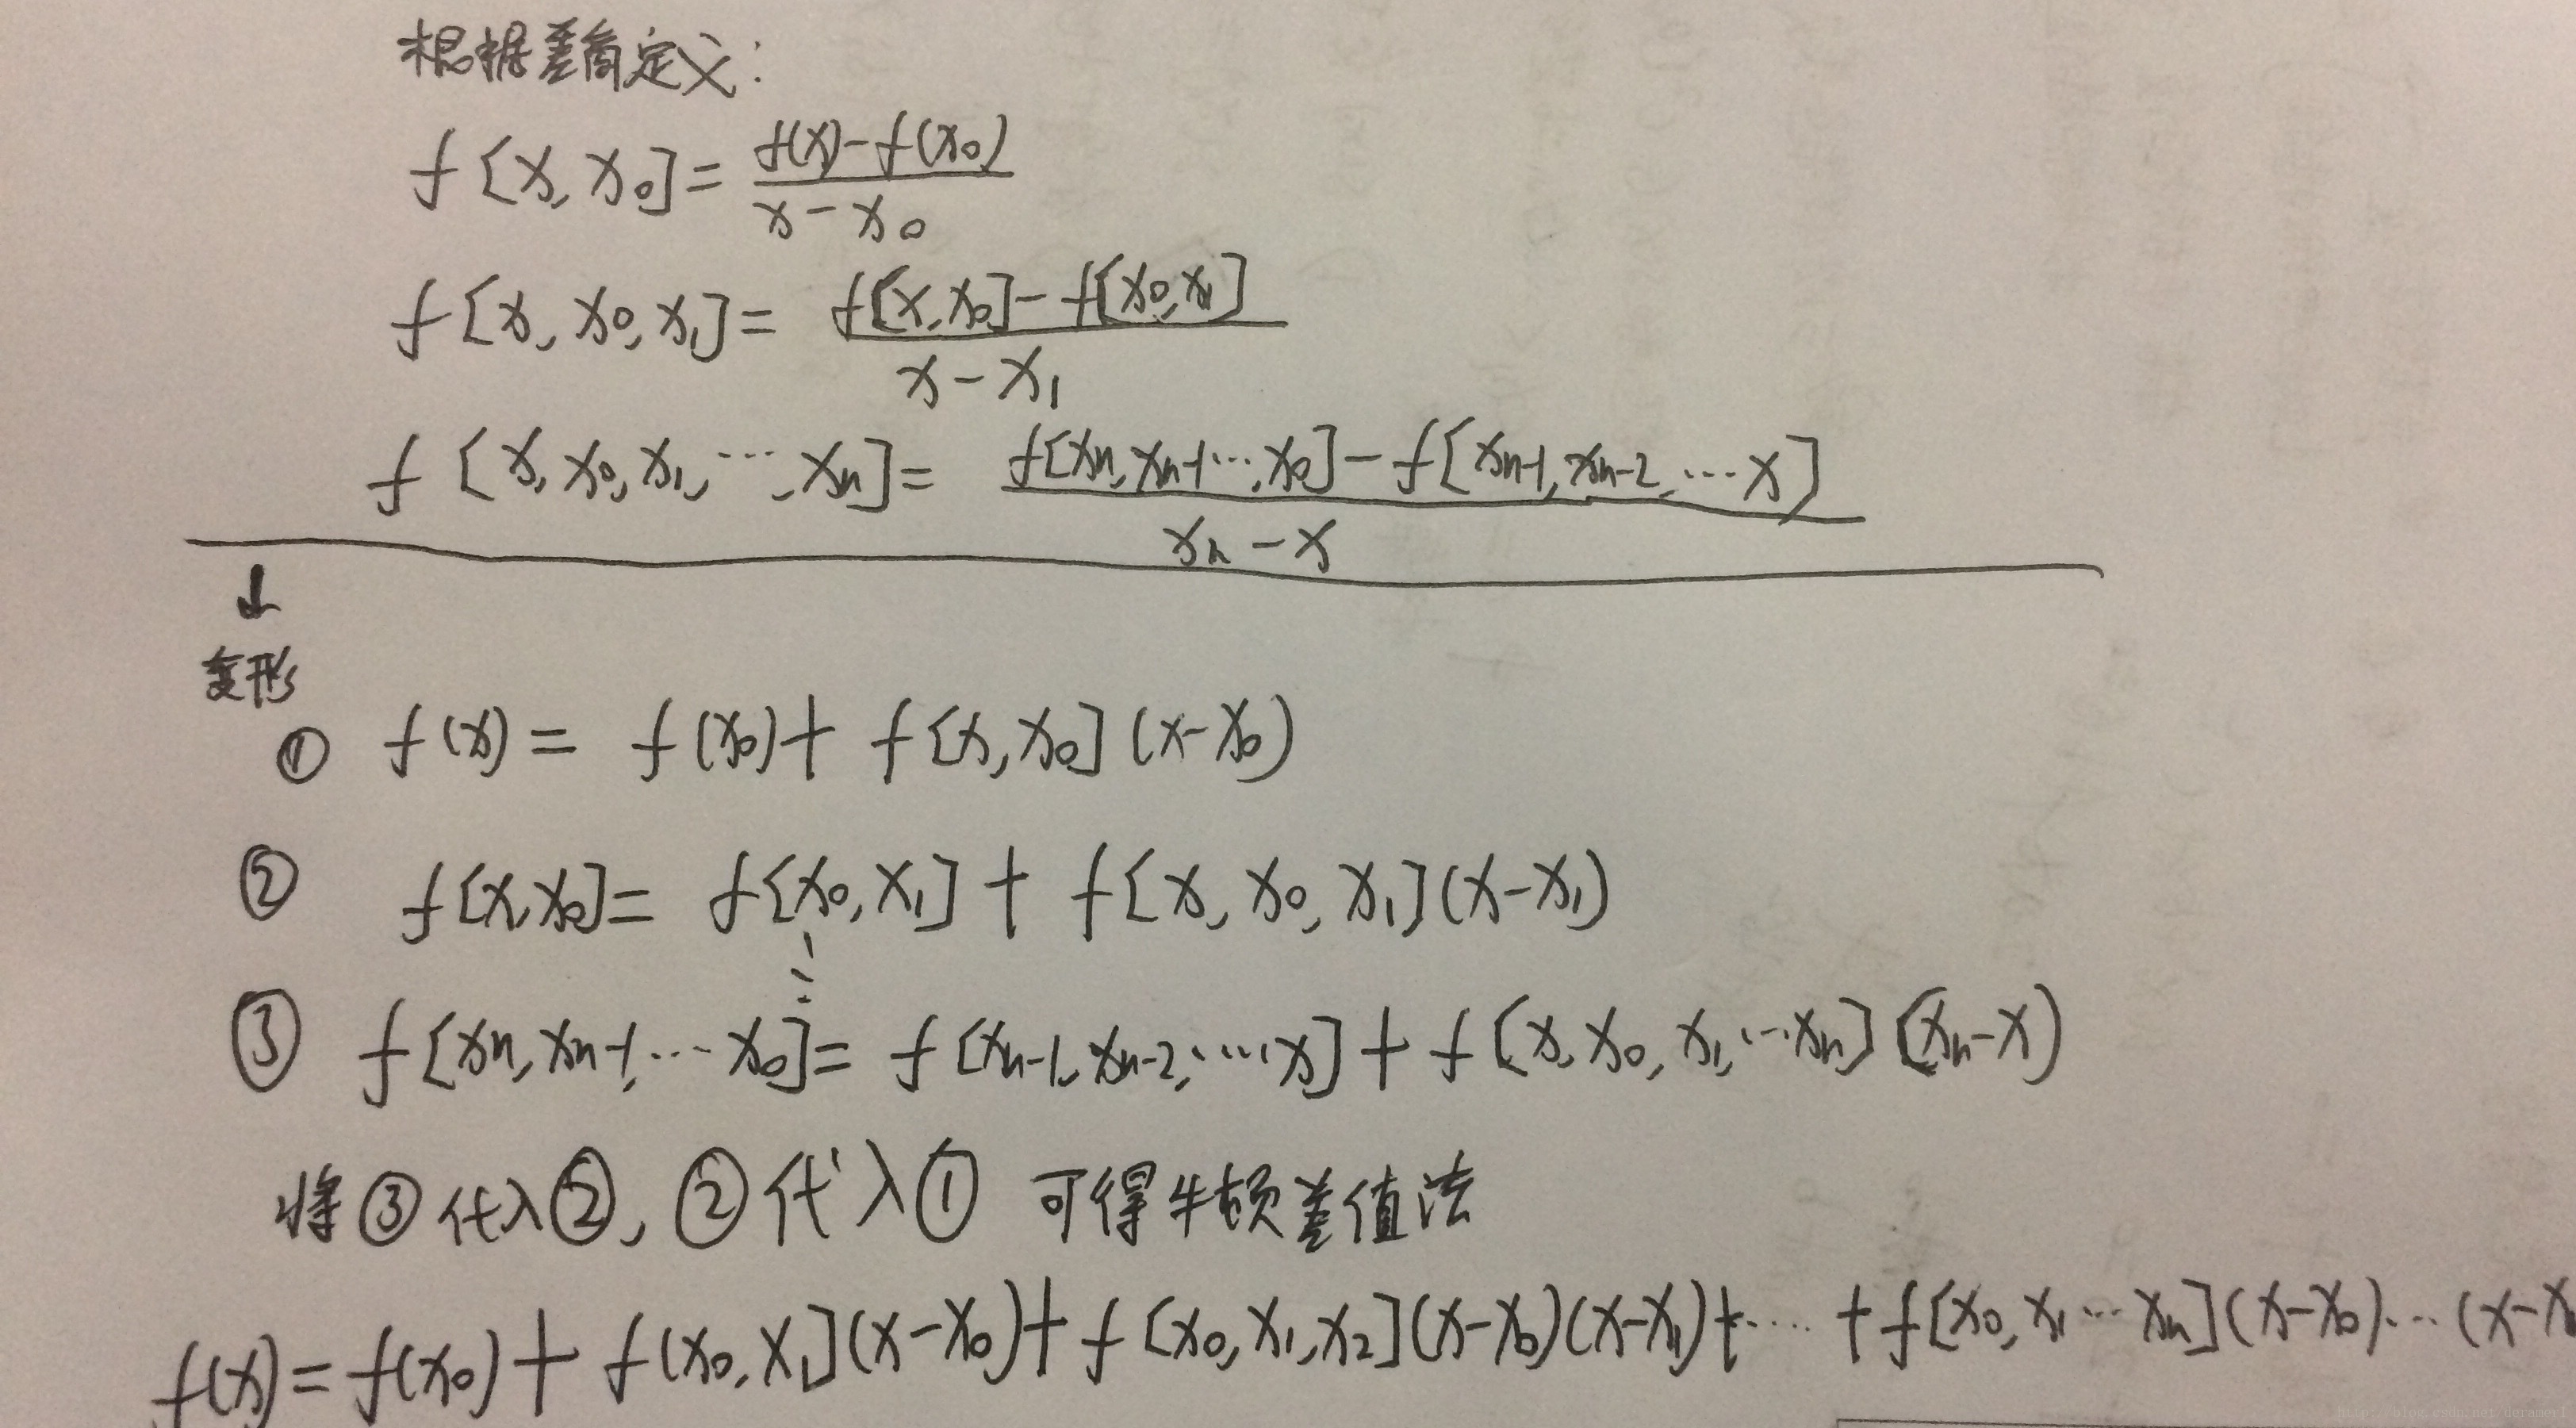 根据差商定义:
f[x, x₀] = (f(x) - f(x₀)) / (x - x₀)
f[x, x₀, x₁] = (f[x, x₀] - f[x₀, x₁]) / (x - x₁)
f[x, x₀, x₁, …, xₙ] = (f[xₙ, xₙ₋₁ …, x₀] - f[xₙ₋₁, xₙ₋₂, … x]) / (xₙ - x)
↓
变形
① f(x) = f(x₀) + f[x, x₀](x - x₀)
② f[x, x₀] = f[x₀, x₁] + f[x, x₀, x₁](x - x₁)
⋮
③ f[xₙ, xₙ₋₁, … x₀] = f[xₙ₋₁, xₙ₋₂, … x] + f[x, x₀, x₁, … xₙ](xₙ - x)
将③代入②, ②代入① 可得牛顿差值法
f(x) = f(x₀) + f(x₀, x₁](x - x₀) + f[x₀, x₁, x₂](x - x₀)(x - x₁) + … + f[x₀, x₁ … xₙ](x - x₀) … (x - x